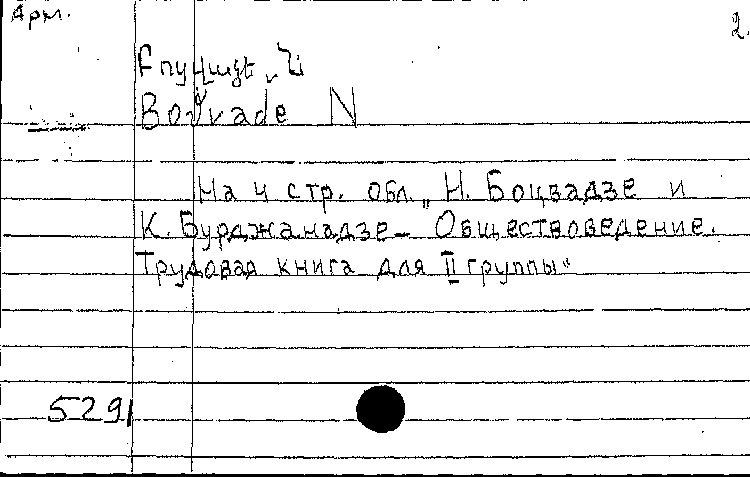 Арм.
2.
Բոցվաձե, Ն
Bocvade N
На 4 стр. обл. „Н. Боцвадзе и
К. Бурджанадзе — Обществоведение.
Трудовая книга для II группы“
5291